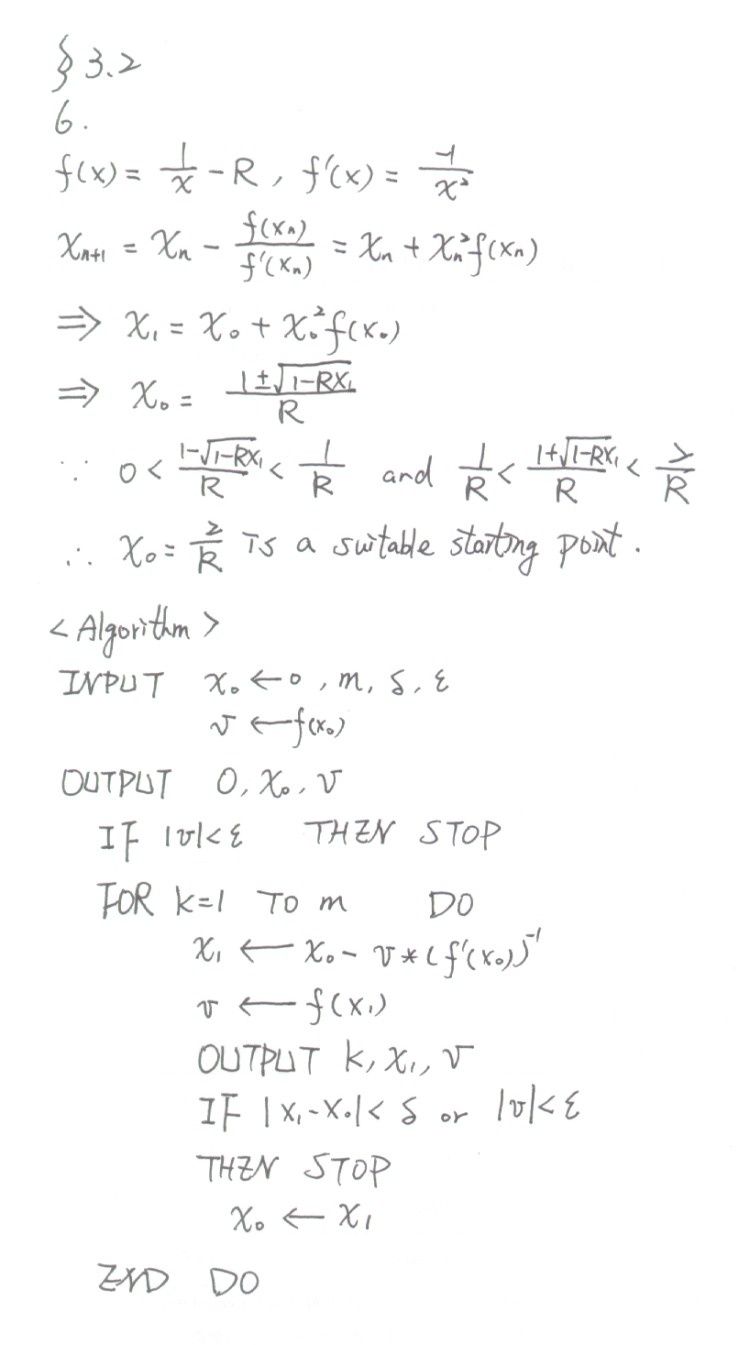 § 3.2
6.
f(x) = 1/x - R, f'(x) = -1/x²
xₙ₊₁ = xₙ - f(xₙ)/f'(xₙ) = xₙ + xₙ²f(xₙ)
⇒ x₁ = x₀ + x₀²f(x₀)
⇒ x₀ = (1±√(1-Rx₁))/R
∵ 0 < (1-√(1-Rx₁))/R < 1/R and 1/R < (1+√(1-Rx₁))/R < 2/R
∴ x₀ = 2/R is a suitable starting point.
< Algorithm >
INPUT x₀ ← 0, m, δ, ε
v ← f(x₀)
OUTPUT 0, x₀, v
IF |v|<ε THEN STOP
FOR k=1 TO m DO
x₁ ← x₀ - v*(f'(x₀))⁻¹
v ← f(x₁)
OUTPUT k, x₁, v
IF |x₁-x₀|<δ or |v|<ε
THEN STOP
x₀ ← x₁
END DO